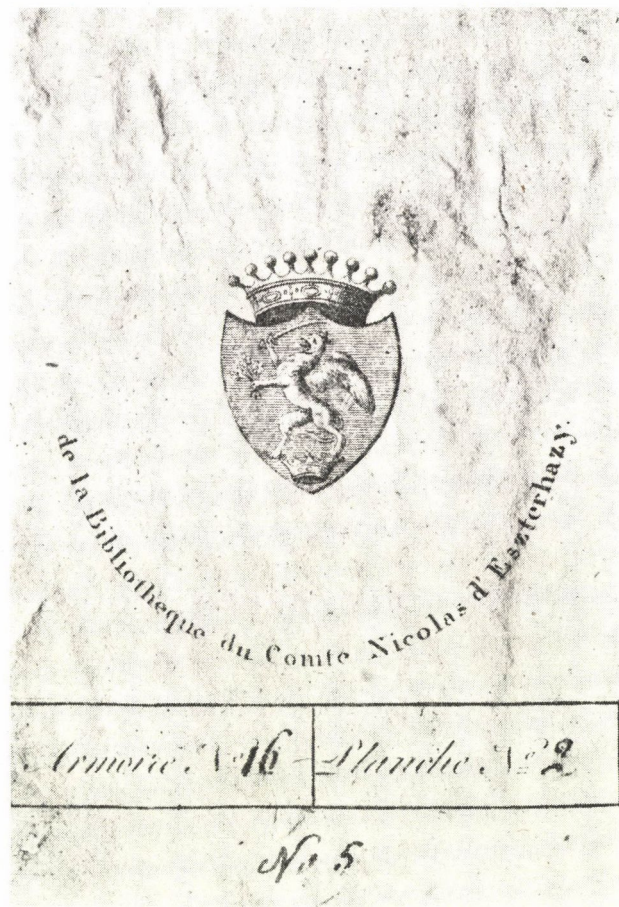 de la Bibliothèque du Comte Nicolas d'Eszterhazy.
Armoire No. 16 Planche No. 2
No 5